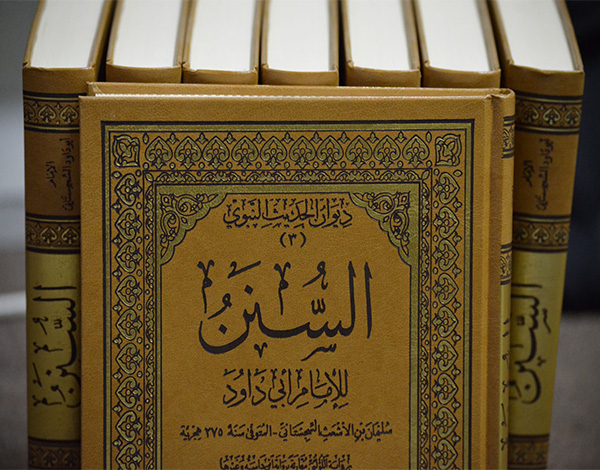 ديوان الحديث النبوي
(٣)
السُّنَنُ
للإمام أبي داود
سليمان بن الأشعث السجستاني - المتوفى سنة ٢٧٥ هجرية
السنن
الإمام
أبو داود السجستاني
السنن
الإمام
أبو داود السجستاني